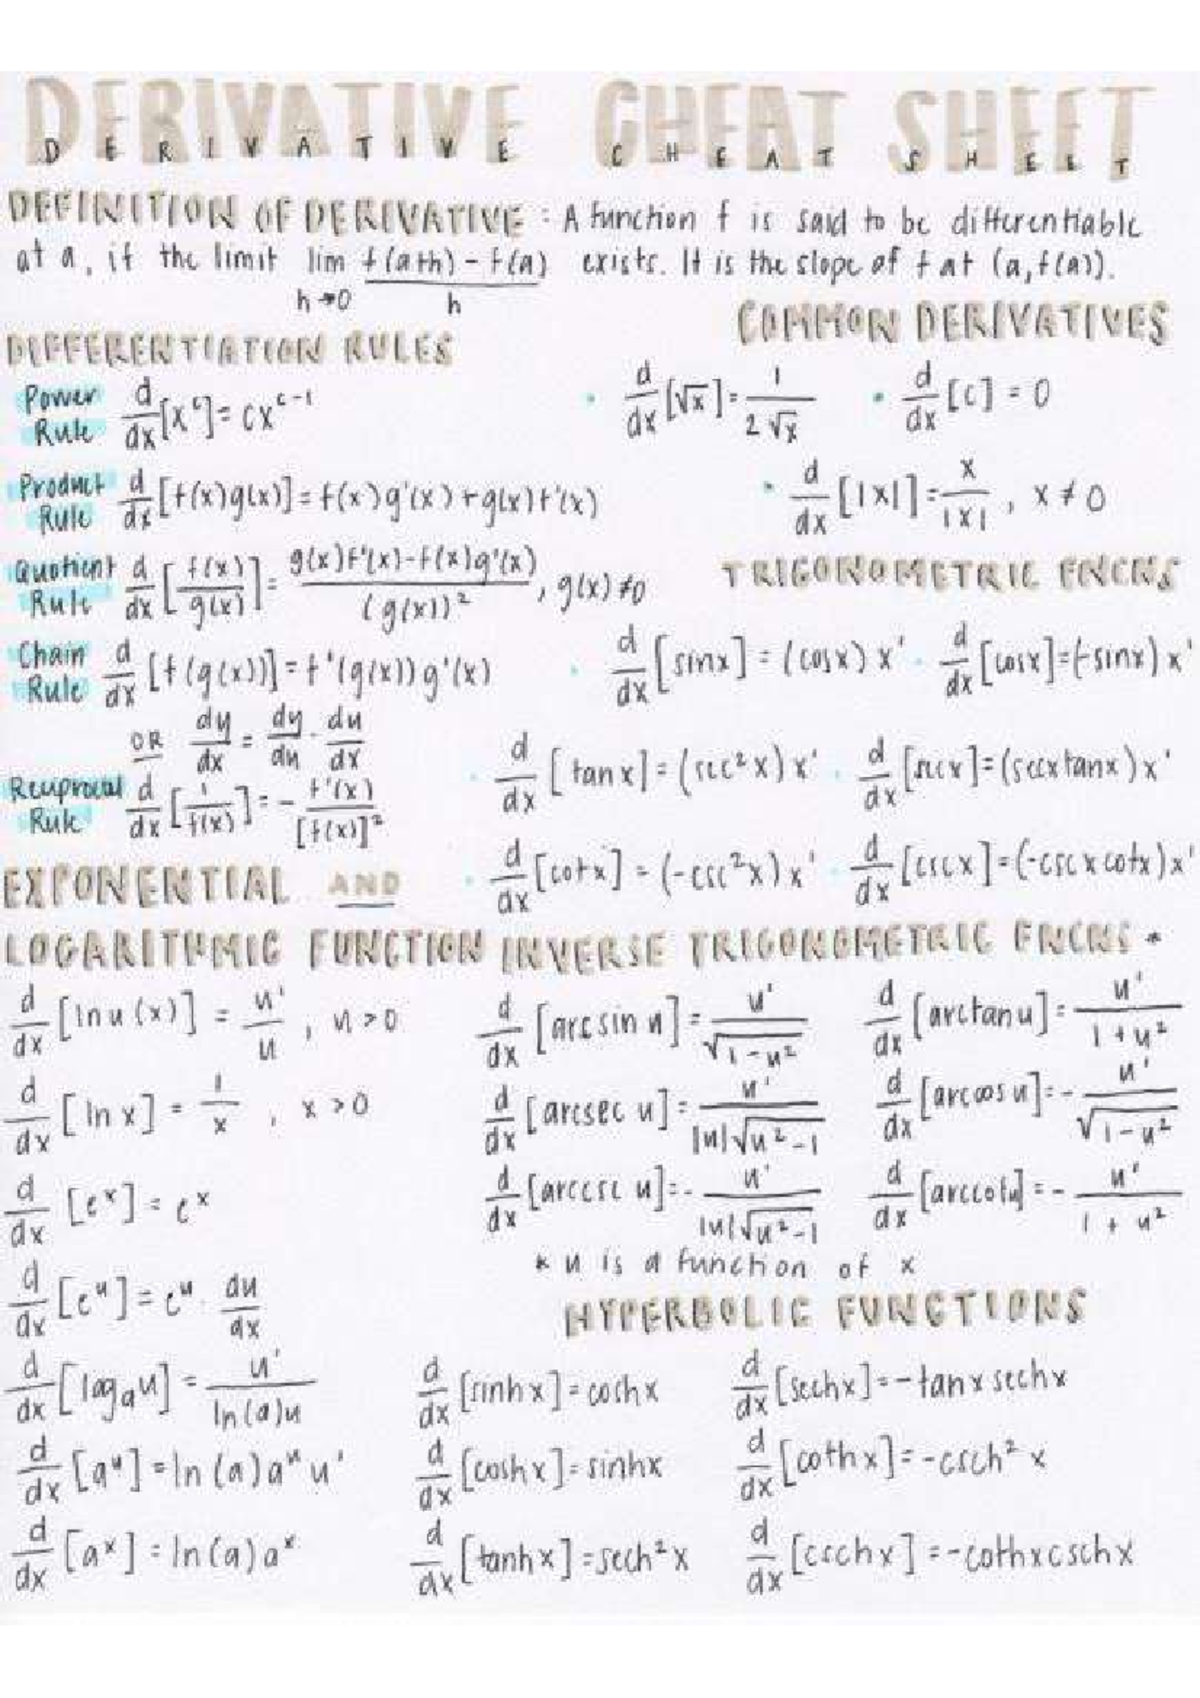 DERIVATIVE CHEAT SHEET
DERIVATIVE CHEAT SHEET
DEFINITION OF DERIVATIVE : A function f is said to be differentiable
at a, if the limit lim h→0 f(a+h) - f(a) / h exists. It is the slope of f at (a, f(a)).
DIFFERENTIATION RULES
Power Rule d/dx [x^c] = cx^(c-1)
Product Rule d/dx [f(x)g(x)] = f(x)g'(x) + g(x)f'(x)
Quotient Rule d/dx [f(x)/g(x)] = g(x)f'(x) - f(x)g'(x) / (g(x))², g(x) ≠ 0
Chain Rule d/dx [f(g(x))] = f'(g(x)) g'(x)
OR dy/dx = dy/du · du/dx
Reciprocal Rule d/dx [1/f(x)] = - f'(x)/[f(x)]²
COMMON DERIVATIVES
· d/dx [√x] = 1/(2√x) · d/dx [c] = 0
· d/dx [|x|] = x/|x| , x ≠ 0
TRIGONOMETRIC FNCNS
· d/dx [sinx] = (cosx) x' · d/dx [cosx] = (-sinx) x'
· d/dx [tanx] = (sec²x) x' · d/dx [secx] = (secxtanx) x'
· d/dx [cotx] = (-csc²x) x' · d/dx [cscx] = (-cscxcotx) x'
EXPONENTIAL AND
LOGARITHMIC FUNCTION
d/dx [ln u(x)] = u'/u , u > 0
d/dx [ln x] = 1/x , x > 0
d/dx [e^x] = e^x
d/dx [e^u] = e^u · du/dx
d/dx [log_a u] = u'/(ln(a)u)
d/dx [a^u] = ln(a) a^u u'
d/dx [a^x] = ln(a) a^x
INVERSE TRIGONOMETRIC FNCNS *
d/dx [arcsin u] = u'/√(1-u²) d/dx [arctan u] = u'/(1+u²)
d/dx [arcsec u] = u'/(|u|√(u²-1)) d/dx [arccos u] = - u'/√(1-u²)
d/dx [arccsc u] = - u'/(|u|√(u²-1)) d/dx [arccotu] = - u'/(1+u²)
* u is a function of x
HYPERBOLIC FUNCTIONS
d/dx [sinhx] = coshx d/dx [sechx] = -tanx sechx
d/dx [coshx] = sinhx d/dx [cothx] = -csch² x
d/dx [tanhx] = sech²x d/dx [cschx] = -cothxcschx